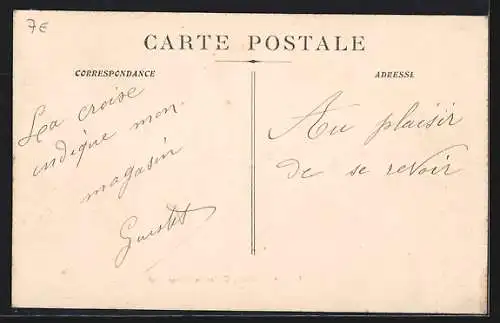 7€
CARTE POSTALE
CORRESPONDANCE
La croise
indique mon
magasin
ADRESSE
Au plaisir
de se revoir